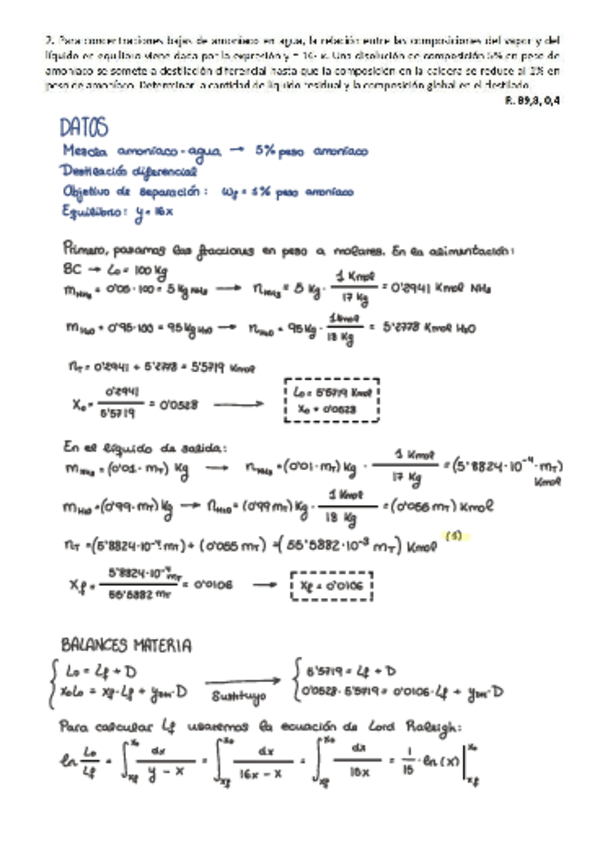 2. Para concentraciones bajas de amoniaco en agua, la relación entre las composiciones del vapor y del
líquido en equilibrio viene dada por la expresión y = 16· x. Una disolución de composición 5% en peso de
amoniaco se somete a destilación diferencial hasta que la composición en la caldera se reduce al 1% en
peso de amoniaco. Determinar la cantidad de líquido residual y la composición global en el destilado.
R.: 89,8, 0,4
DATOS
Mezcla amoníaco-agua → 5% peso amoníaco
Destilación diferencial
Objetivo de separación: ωf = 1% peso amoníaco
Equilibrio: y = 16x
Primero, pasamos las fracciones en peso a molares. En la alimentación:
BC → L0 = 100 Kg
mNH3 = 0'05·100 = 5 Kg NH3 → nNH3 = 5 Kg · 1 Kmol / 17 Kg = 0'2941 Kmol NH3
mH2O = 0'95·100 = 95 Kg H2O → nH2O = 95 Kg · 1 Kmol / 18 Kg = 5'2778 Kmol H2O
nT = 0'2941 + 5'2778 = 5'5719 Kmol
X0 = 0'2941 / 5'5719 = 0'0528 → L0 = 5'5719 Kmol
X0 = 0'0528
En el líquido de salida:
mNH3 = (0'01·mT) Kg → nNH3 = (0'01·mT) Kg · 1 Kmol / 17 Kg = (5'8824·10⁻⁴·mT) Kmol
mH2O = (0'99·mT) Kg → nH2O = (0'99 mT) Kg · 1 Kmol / 18 Kg = (0'055 mT) Kmol
nT = (5'8824·10⁻⁴ mT) + (0'055 mT) = (55'5882·10⁻³ mT) Kmol (1)
Xf = 5'8824·10⁻⁴ mT / 55'5882 mT = 0'0106 → Xf = 0'0106
BALANCES MATERIA
L0 = Lf + D → 5'5719 = Lf + D
X0L0 = Xf·Lf + yDM·D Sustituyo 0'0528·5'5719 = 0'0106·Lf + yDM·D
Para calcular Lf usaremos la ecuación de Lord Raleigh:
ln L0/Lf = ∫xf^x0 dx / y − x = ∫xf^x0 dx / 16x − x = ∫xf^x0 dx / 15x = 1/15 · ln (x) |xf^x0